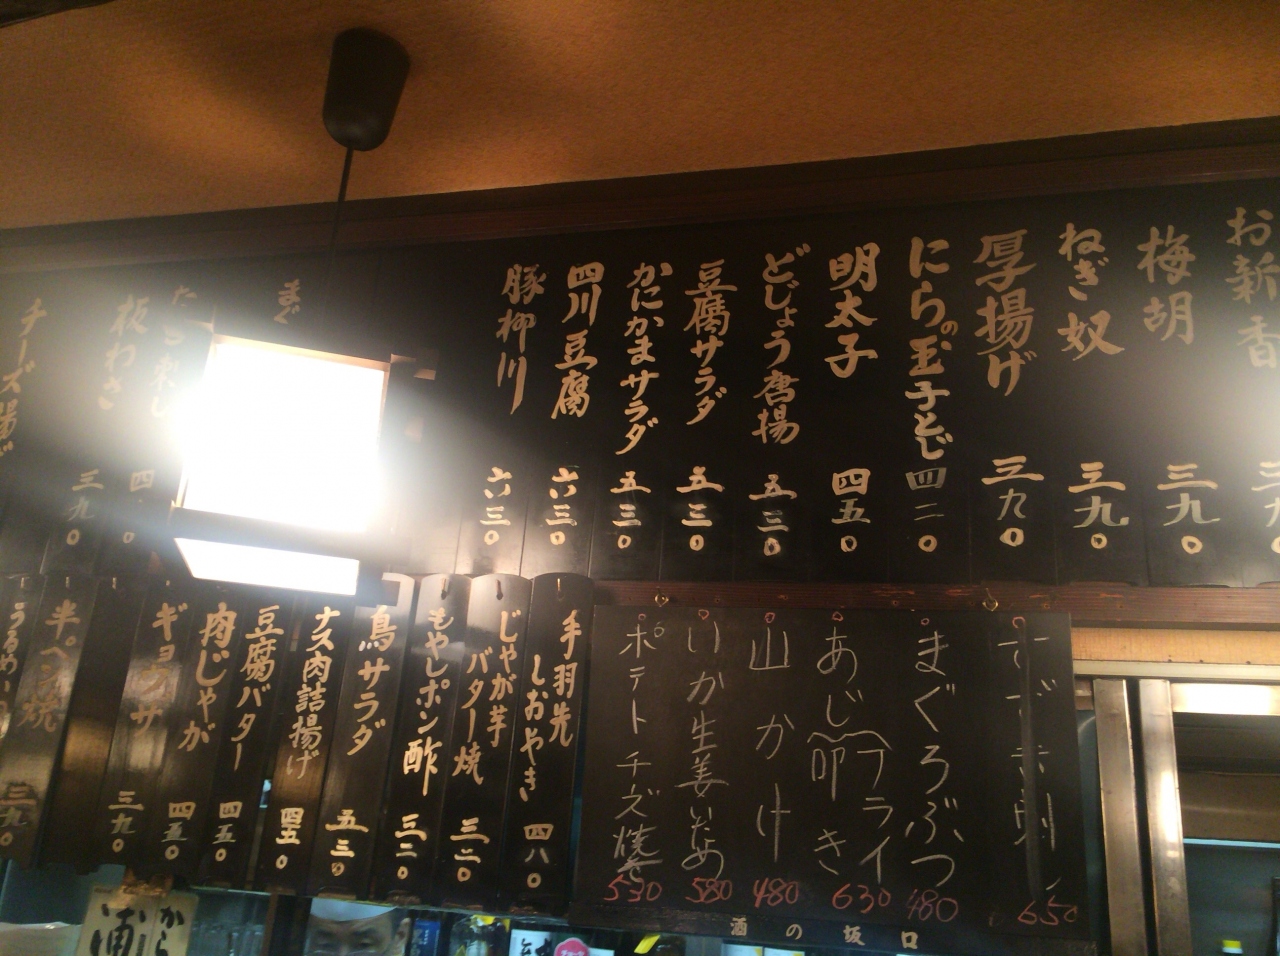 お新香
梅胡
三九〇
ねぎ奴
三九〇
厚揚げ
三九〇
にらの玉子とじ
四二〇
明太子
四五〇
どじょう唐揚
五三〇
豆腐サラダ
五三〇
かにかまサラダ
五三〇
四川豆腐
六三〇
豚柳川
六三〇
まぐ
板わさ
三九〇
チーズ揚げ
手羽先
しおやき
四八〇
じゃが芋
バター焼
三二〇
もやしポン酢
三二〇
鳥サラダ
五三〇
ナス肉詰揚げ
四五〇
豆腐バター
四五〇
肉じゃが
四五〇
ギョウザ
三九〇
半ペン焼
三九〇
650
まぐろぶつ
480
あじフライ
630
山かけ
480
いか生姜いため
580
ポテトチーズ焼き
530
酒の坂口
から